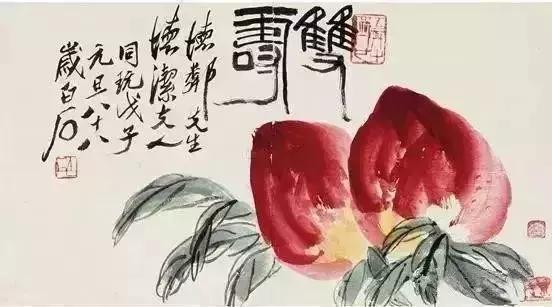 雙壽
先生
潔夫人
同玩戊子
元旦八十八
歲白石